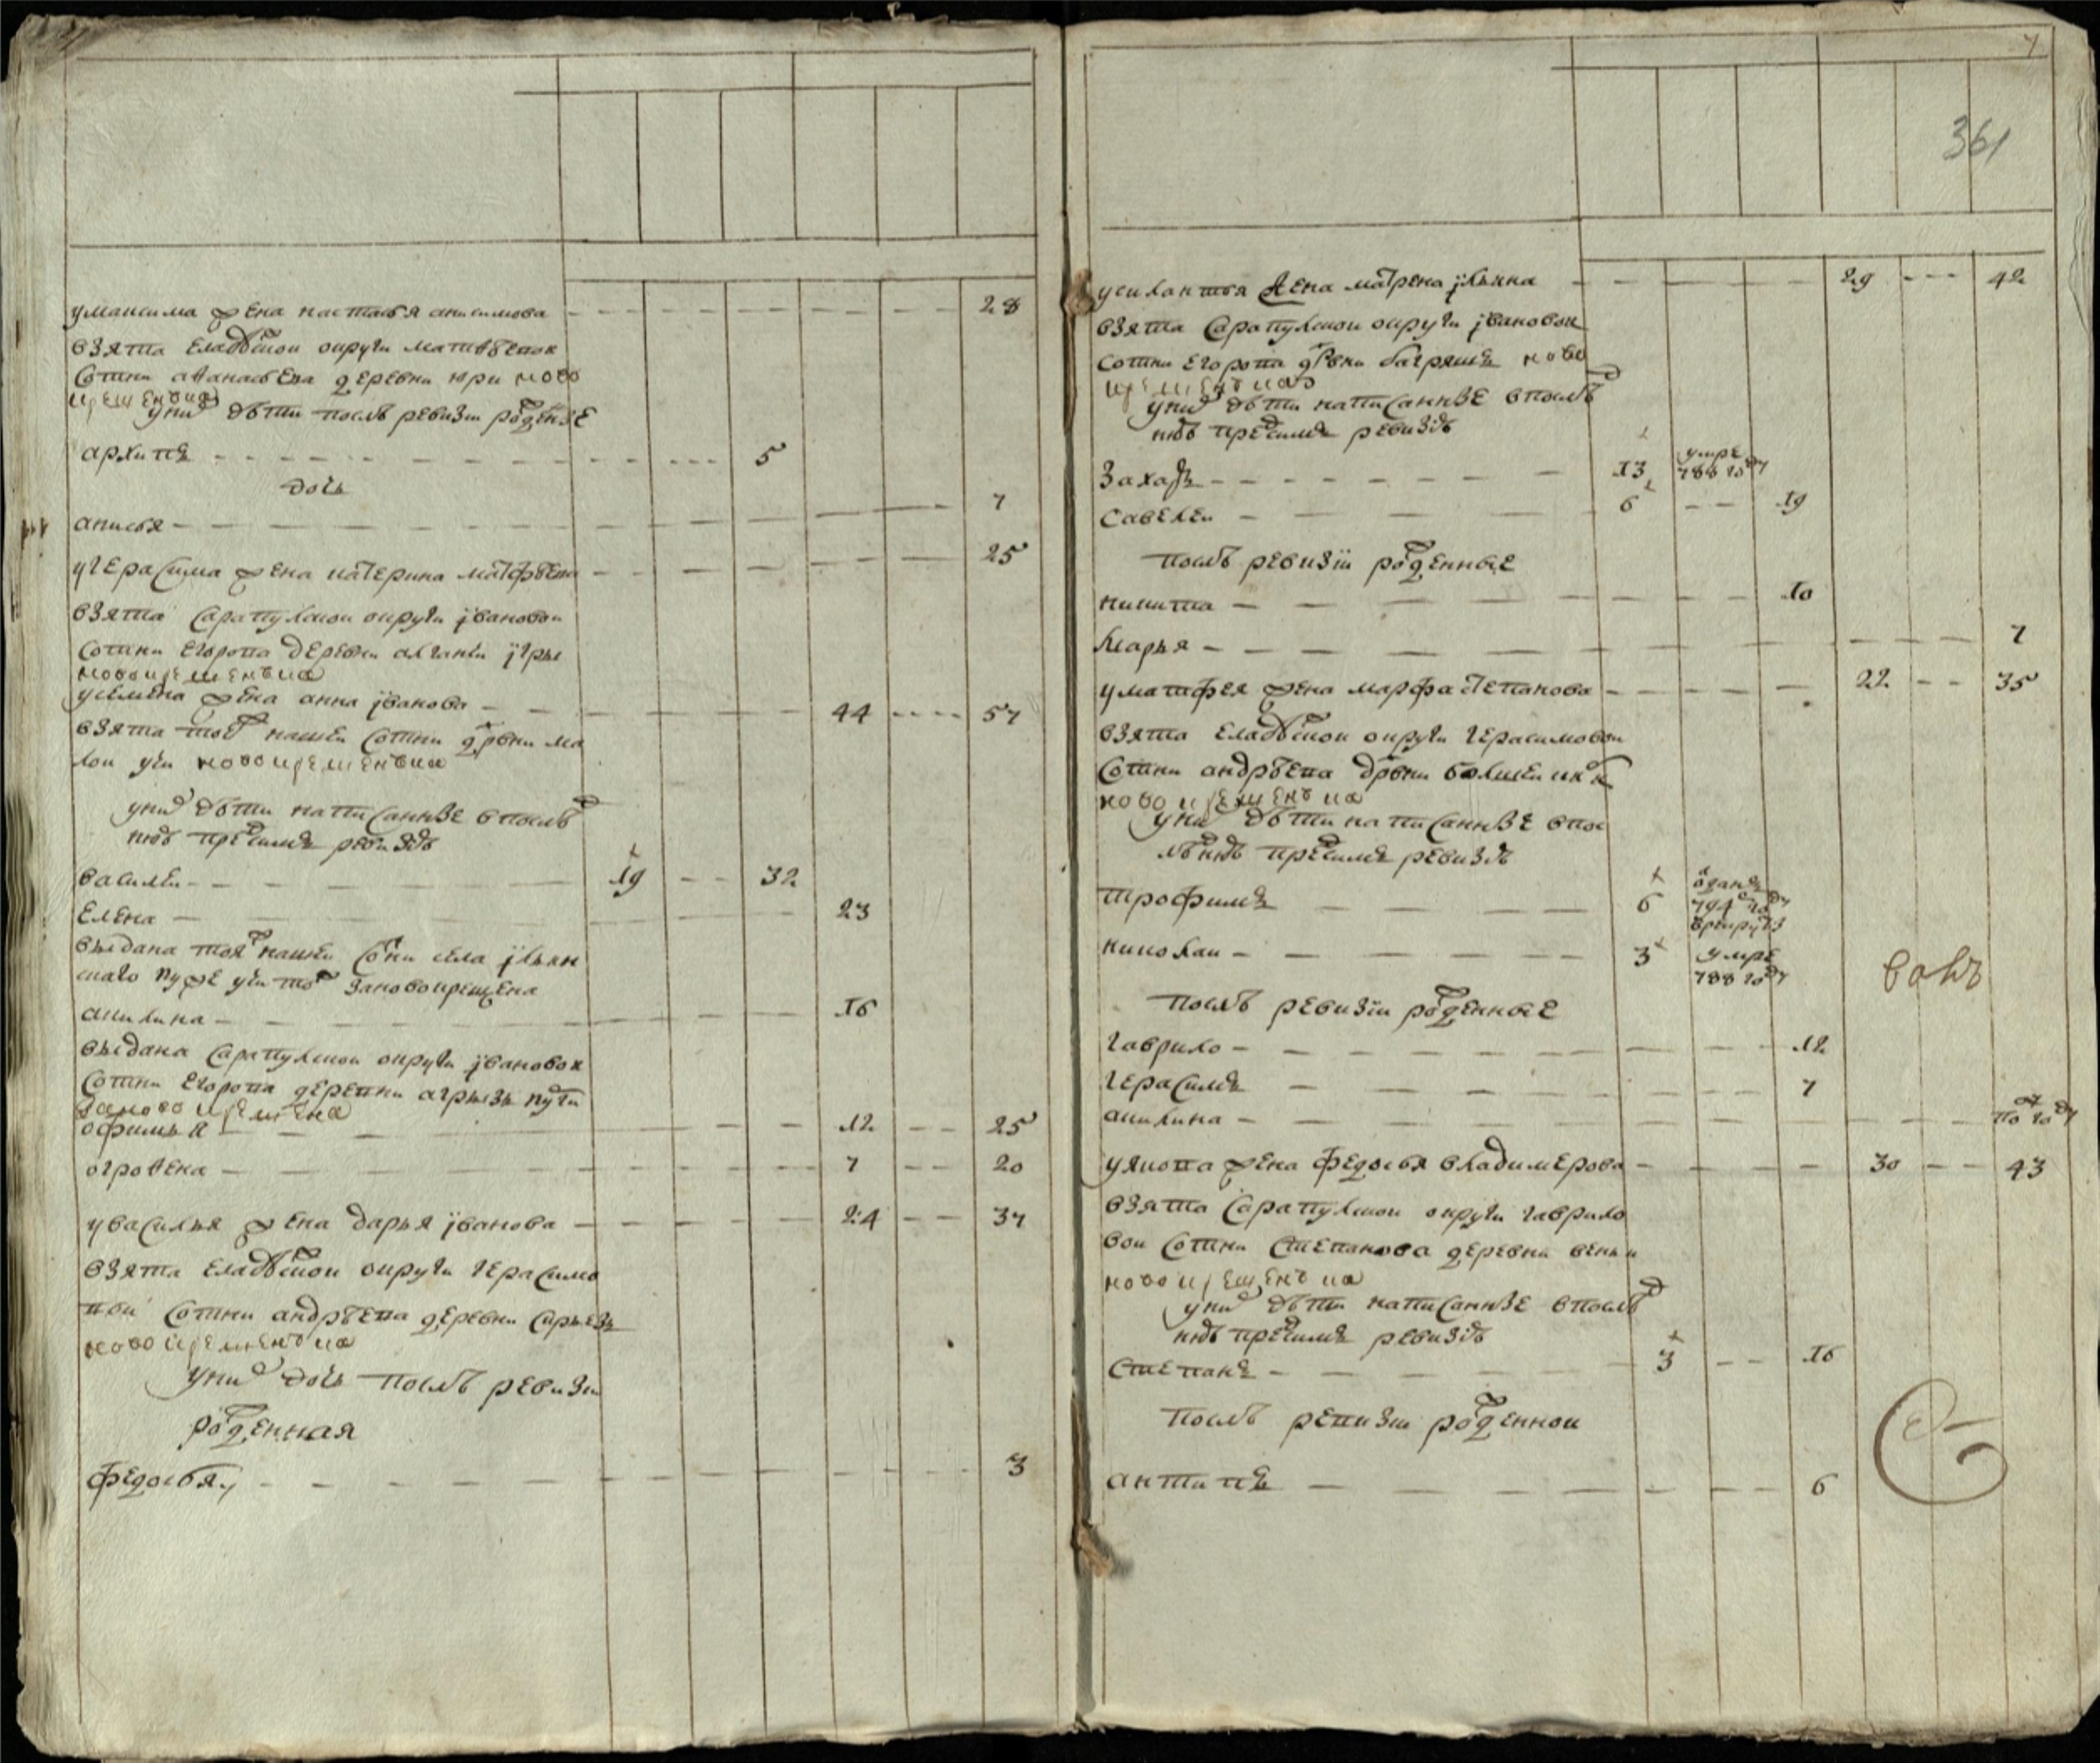 умаксима жена настасья анисимова — 28
взята Елабуской округи матвѣевой
сотни аѳанасьева деревни юри ново
крещенъка
уних дѣти послѣ ревизіи рожденые
архипъ — 5
дочь
анисья — 7
угерасима жена катерина матфѣева — 25
взята сарапулской округи jвановои
сотни Егорова деревни
новокрещенъка
усемена жена анна jванова — 44 — 57
взята тоеж нашеи сотни дрвни ма
лои учи новокрещенъка
уних дѣти написанные впослѣд
нюю пред симъ ревизию
василеи — 19 — 32
Елена — 23
выдана тояж нашеи сотни села jльин
скаго зановокрещена
акилина — 16
выдана сарапулской округи jвановои
сотни Егорова деревни агрызь
зановокрещена
офимья — 12 — 25
огроѳена — 7 — 20
увасилья жена дарья jванова — 24 — 37
взята Елабуской округи герасимо
вои сотни андрѣева деревни
новокрещенъка
уних дочь послѣ ревизіи
рожденная
федосья — 3
7
361
усилантья жена матрена jльина — 29 — 42
взята сарапулской округи jвановои
сотни Егорова дрвни багряшъ ново
крещенъка
уних дѣти написанные впослѣд
нюю пред симъ ревизию
захаръ — 13 умре 788 году
савелеи — 6 — 19
послѣ ревизіи рожденные
никита — 10
марья — 7
уматфея жена марфа степанова — 22 — 35
взята Елабуской округи герасимовои
сотни андрѣева дрвни болшеи
новокрещенъка
уних дѣти написанные впос
лѣднюю пред симъ ревизию
трофимъ — 6 отданъ 794 году врекруты
николаи — 3 умре 788 году
послѣ ревизіи рожденные
гаврило — 12
герасимъ — 7
акилина — пол году
уякова жена федосья владимерова — 30 — 43
взята сарапулской округи гаврило
вои сотни степанова деревни
новокрещенъка
уних дѣти написанные впослѣд
нюю пред симъ ревизию
степанъ — 3 — 16
послѣ ревизіи рожденнои
антипъ — 6